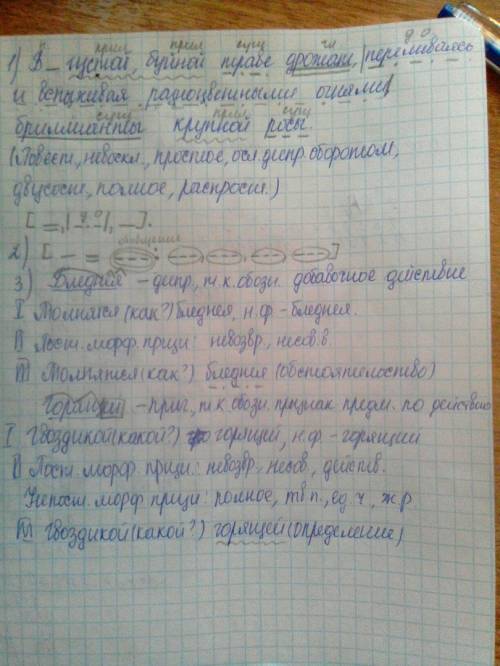 прил прил сущ гл д.о.
1) В густой, буйной траве дрожали, |переливаясь
и вспыхивая разноцветными огнями|
сущ прил сущ
бриллианты крупной росы.
(Повест., невоскл., простое, осл. дипр. оборотом,
двусост., полное, распрост.)
[ =, |д.о|, —].
обобщения
2) [ — = : , , , ]
3) Бледнея – дипр., т.к. обозн. добавочное действие
I Молился (как?) бледнея, н.ф. – бледнея.
II Пост. морф. призн: невозвр., несов. в.
III (как?) бледнея (обстоятельство)
Горящей – прич., т.к. обозн. признак предм. по действию
I Гвоздикой (какой?) горящей, н.ф. – горящий
II Пост. морф. призн: невозвр., несов., действ.
Непост. морф. призн: полное, тв п., ед. ч, ж.р
III Гвоздикой (какой?) горящей (определение)